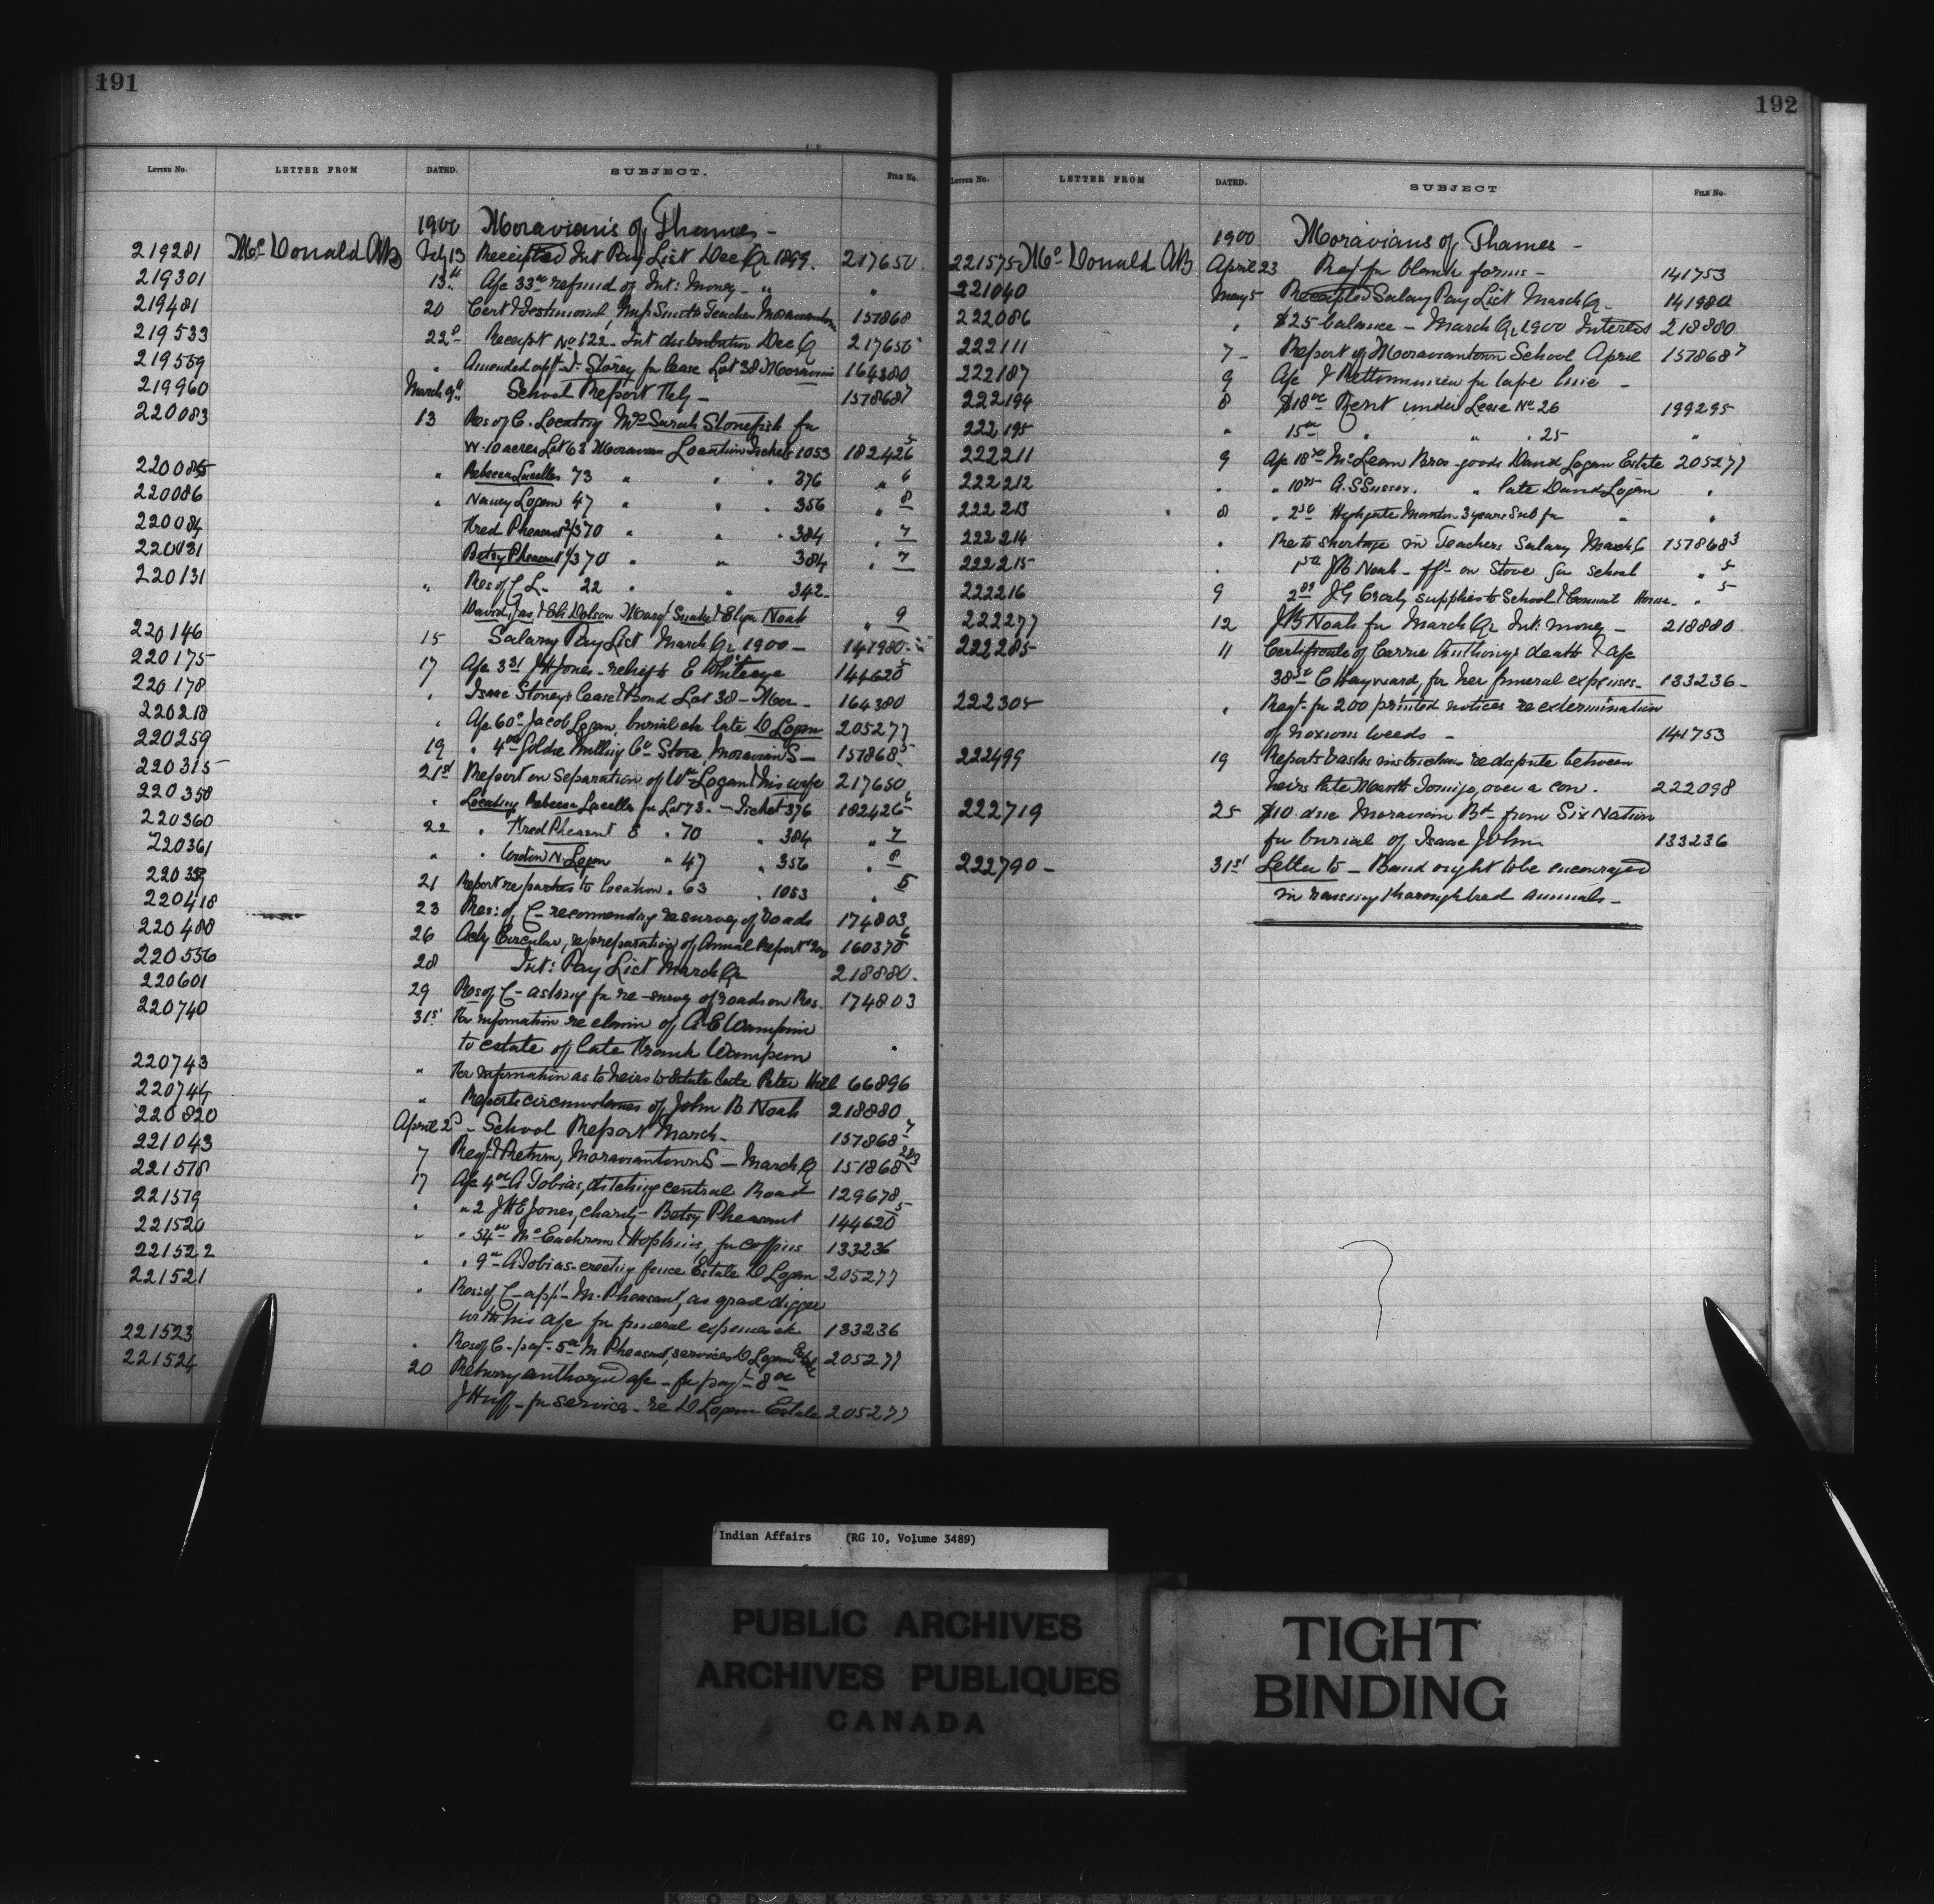 191
LETTER No. LETTER FROM DATED. SUBJECT. FILE No.
1900 Moravians of Thames -
219281 McDonald AB Feby 13 Receipted Int Pay List Dec Qr 1899. 217650
219301 13th Ap 33 00 refund of Int: Money - " "
219481 20 Cert & Testimonial, Teacher Moraviantown 157868
219533 22d Receipt No 622 - Int distribution Dec Q 217650
219559 " Amended appt I. Storey for lease Lot 38 Moravian 164380
219960 March 9th School Report Feby - 157868 7
220083 13 Res of C. Locating Mrs Sarah Stonefish for
W. 10 acres Lot 63 Moravian Location Ticket 1053 182426 5
220085 " Rebecca Lacelles 73 " " 376 " 6
220086 " Nancy Logan 47 " " 356 " 8
220084 Fred Pheasant 2/3 70 " " " 384 " 7
220031 Betsy Pheasant 1/3 70 " " 384 " 7
220131 " Res of C L - 22 " " 342 -
David, Jas, & Eli Dolson Mary Snake & Eliza Noah " 9
220146 15 Salary Pay List March Qr 1900 - 141980
220175 17 Ap 3 31 JH Jones - relief to E Whiteeye 144620 5
220178 " Isaac Storey's Lease & Bond Lot 38 - Mor - 164380
220218 " Ap 60c Jacob Logan, burial etc late D Logan 205277
220259 19 " 4 00 Goldie Milling Co Stove, Moravian S - 157868 5
220315 21st Report on Separation of Wm Logan & his wife 217650
220358 " Locating Rebecca Lacelles for Lot 73. - Ticket 376 182426 6
220360 22 " Fred Pheasant & " 70 " 384 " 7
220361 " " N. Logan " 47 " 356 " 8
220359 21 Report re parties to location " 63 " 1053 " 5
220418 23 Res: of C - recommending resurvey of roads 174803
220480 26 Acks Circular, re preparation of Annual Report 160370 6
220556 28 Int: Pay List March Qr 218880 -
220601 29 Res of C - asking for re-survey of roads on Res. 174803
220740 31st For information re claim of A E Wampum
to estate of late Frank Wampum "
220743 " For information as to heirs to Estate late Peter Hill 66896
220744 " Reports circumstances of John B Noah 218880
220820 April 2d - School Report March - 157868 7
221043 7 Reqn & Return, Moraviantown S - March Q 151868 2&3
221518 17 Ap 4 00 A Tobias, ditching central Road 129678
221519 " " 2 JHE Jones, charity - Betsy Pheasant 144620 5
221520 " " 54 00 McEachren & Hopkins, for coffins 133236
221522 " " 9 00 A Tobias - erecting fence Estate D Logan 205277
221521 " Res: of C - appt - M. Pheasant, as grave digger
with his Ap for funeral expenses etc 133236
221523 " Res of C - payt - 5 00 M Pheasant, services D Logan Est 205277
221524 20 Returning authorized Ap - for payt - 8 00
J Huff - for services - re D Logan Estate 205277
192
LETTER No. LETTER FROM DATED. SUBJECT FILE No.
1900 Moravians of Thames -
221575 McDonald AB April 23 Reqt for blank forms - 141753
221040 May 5 Receipted Salary Pay List March Q - 141980
222086 " $25 balance - March Qr 1900 Interest 218880
222111 7 - Report of Moraviantown School April 157868 7
222187 9 Ap for tape line -
222194 8 $18 00 Rent under Lease No 26 199295
222195 " 15 00 " " " 25 - "
222211 9 Ap 18 70 McLean Bros - goods David Logan Estate 205277
222212 " " 10 75 A. S Sussex. " late David Logan "
222213 8 " 2 50 Highgate Monitor 3 years Sub for " "
222214 " Re to shortage in Teachers Salary March Q 157868 3
222215 " 1 50 JB Noah - on Stove for school " 5
222216 9 2 89 J G supplies to School & Council House - " 5
222277 12 JB Noah for March Qr Int: money - 218880
222285 11 Certificate of Carrie Anthony's death & Ap
38 50 C Hayward, for her funeral expenses - 133236 -
222305 " Reqt - for 200 printed notices re extermination
of noxious weeds - 141753
222499 19 Reports & asks instructions re dispute between
heirs late over a cow. 222098
222719 25 $10 due Moravian Bd from Six Nation
for burial of Isaac John 133236
222790 - 31st Letter to - Band ought to be encouraged
in raising thoroughbred animals -
Indian Affairs (RG 10, Volume 3489)
PUBLIC ARCHIVES
ARCHIVES PUBLIQUES
CANADA
TIGHT
BINDING
KODAK SAFETY